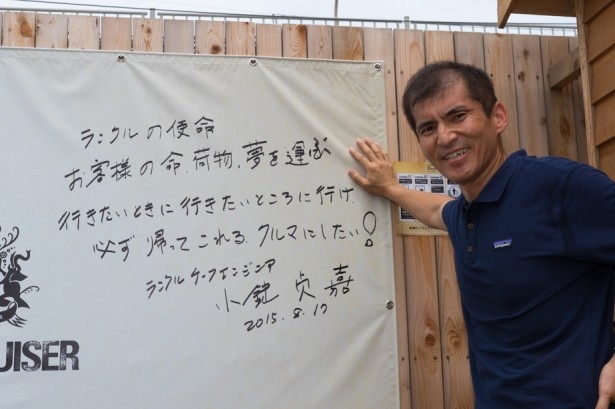 ランクルの使命
お客様の命、荷物、夢を運ぶ
行きたいときに行きたいところに行け、
必ず帰ってこれる クルマにしたい!
ランクル チーフエンジニア
小鑓 貞嘉
2015.8.17
UISER
patagonia